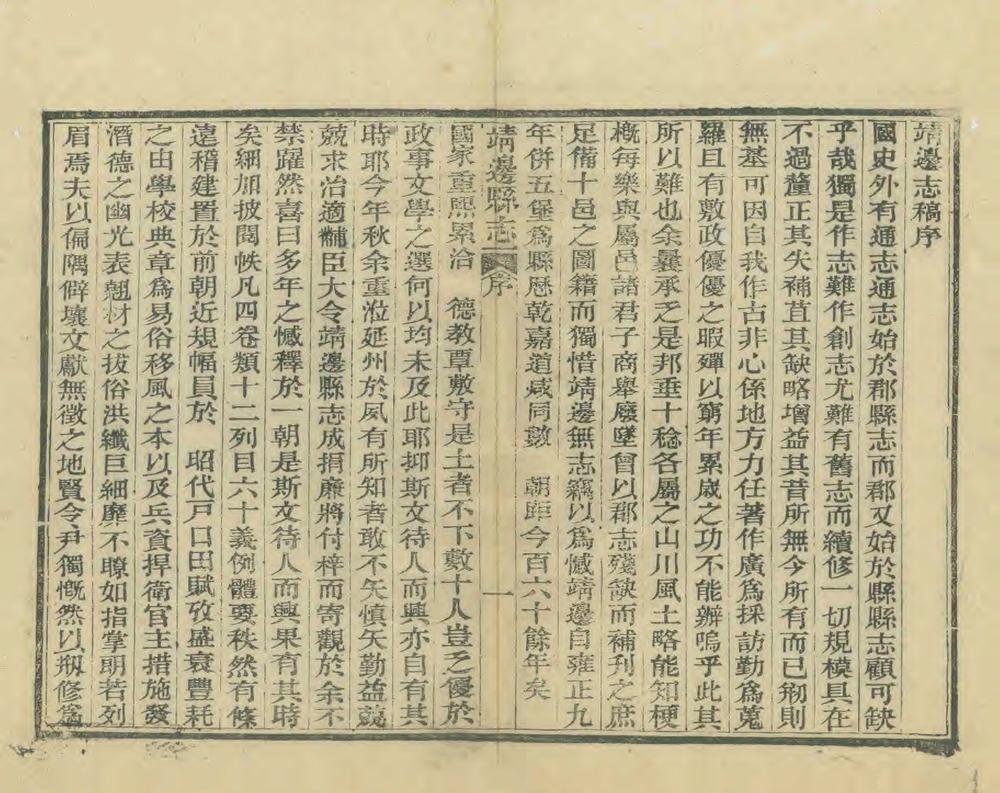 靖邊志稿序
國史外有通志通志始於郡縣志而郡又始於縣縣志顧可缺
乎哉獨是作志難作創志尤難有舊志而續修一切規模具在
不過釐正其失補苴其缺略增益其昔所無今所有而已剏則
無基可因自我作古非心係地方力任著作廣爲採訪勤爲蒐
羅且有敷政優優之暇殫以窮年累歲之功不能辦嗚乎此其
所以難也余曩承乏是邦垂十稔各屬之山川風土略能知梗
槪每樂與屬邑諸君子商舉廢墜曾以郡志殘缺而補刊之庶
足備十邑之圖籍而獨惜靖邊無志竊以爲憾靖邊自雍正九
年併五堡爲縣歷乾嘉道咸同數　朝距今百六十餘年矣
靖邊縣志　序　一
國家重熙累洽　德教覃敷守是土者不下數十人豈乏優於
政事文學之選何以均未及此耶抑斯文待人而興亦自有其
時耶今年秋余重涖延州於夙有所知者敢不矢慎矢勤益兢
兢求治適黼臣大令靖邊縣志成捐廉將付梓而寄觀於余不
禁躍然喜曰多年之憾釋於一朝是斯文待人而興果有其時
矣細加披閱帙凡四卷類十二列目六十義例體要秩然有條
遠稽建置於前朝近規幅員於　昭代戸口田賦攷盛衰豐耗
之由學校典章爲易俗移風之本以及兵資捍衛官主措施發
潛德之幽光表翹材之拔俗洪纖巨細靡不瞭如指掌明若列
眉焉夫以偏隅僻壤文獻無徵之地賢令尹獨慨然以剏修爲